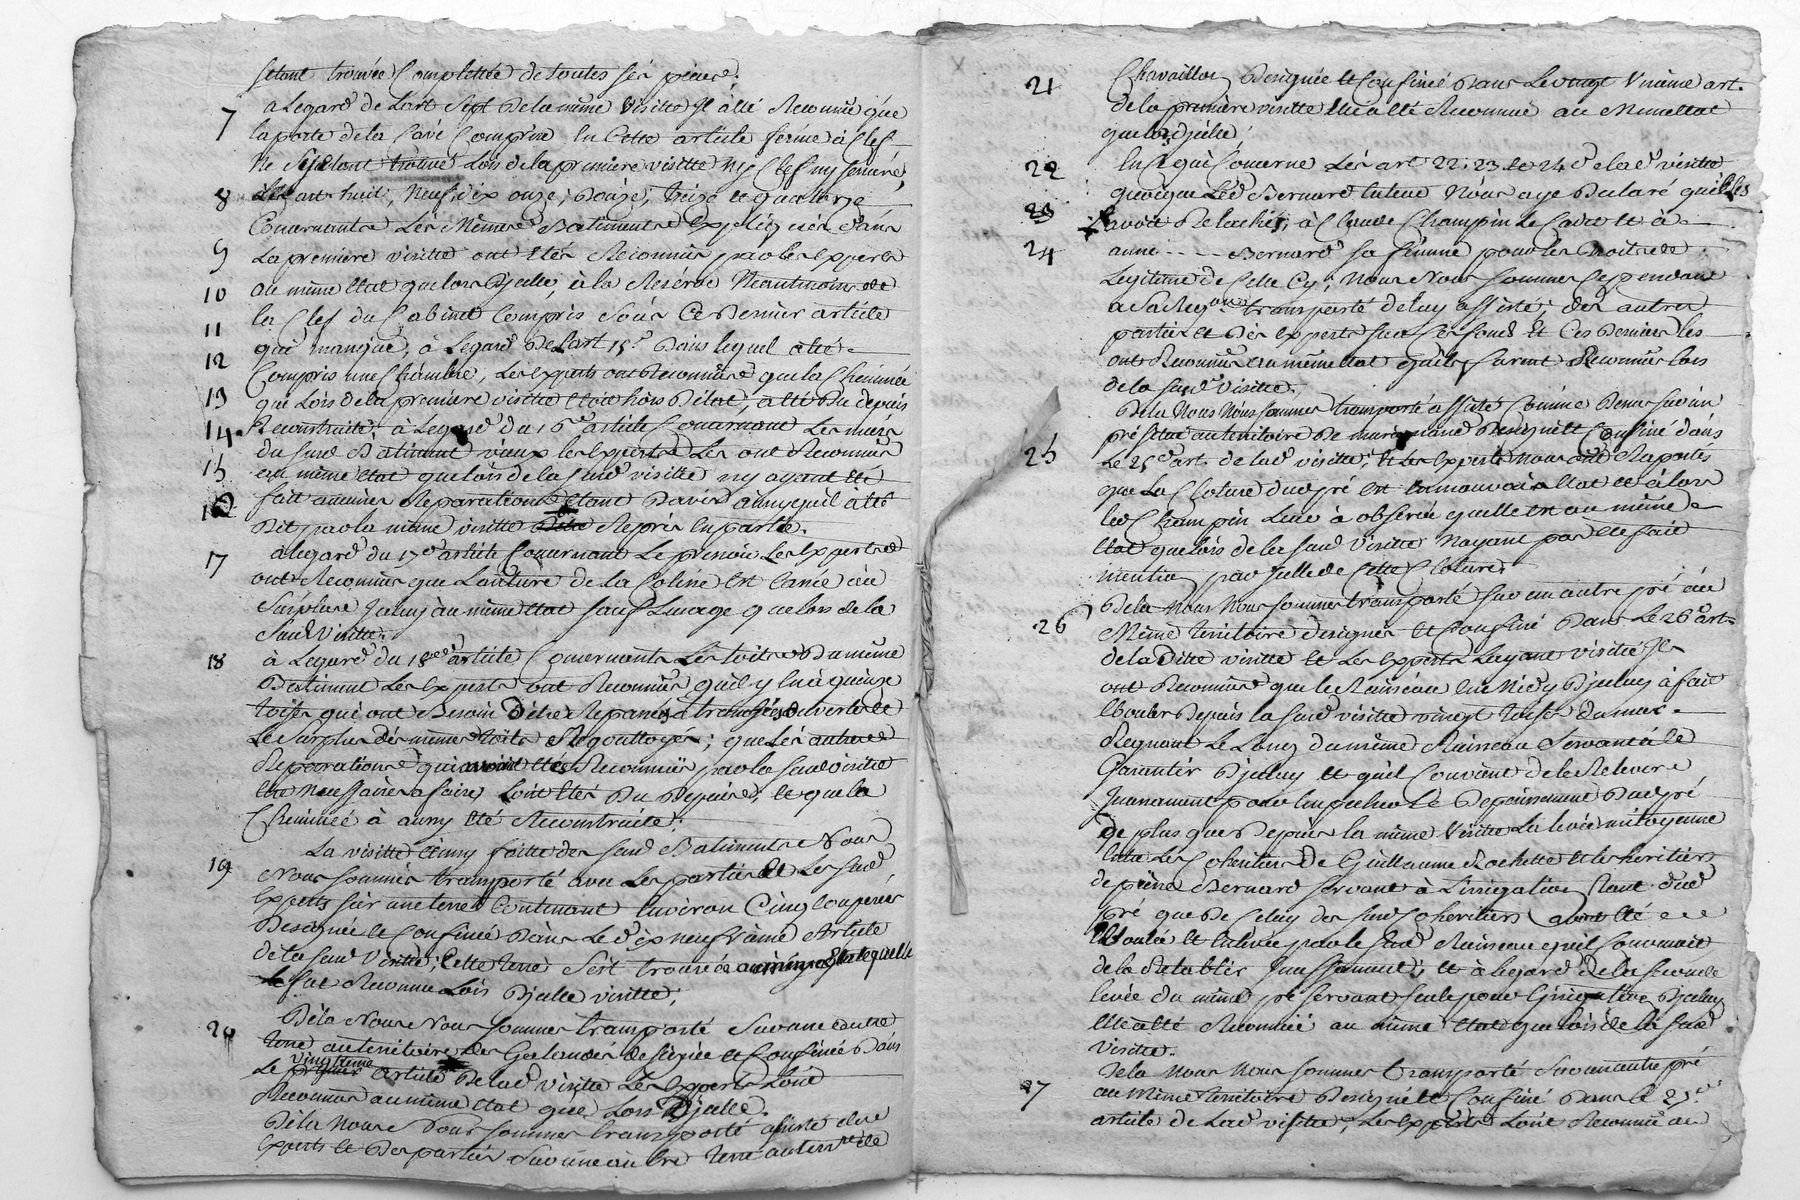 setant trouvée Complettée de toutes ses pieces.
7 a Legard de L'art Sept de la même visitte Il a été Reconnu que
la porte de la Cave Comprise En Cette article ferme à Clef
ne s'étant trouvé Lors de la premiere visitte ny Clef ny serrure,
8 art huit, Neuf, dix onze, Douze, treize et quatorze
Concernants Les Mêmes Batiments Expliqués dans
9 La premiere visitte ont Etés Reconnus par les Experts
10 au même Etat que lors D'icelle, à la Reserve Neantmoins de
11 la Clef du Cabinet Compris sous Ce Dernier article
12 qui manque, à Legard De L'art 15e Dans lequel a été
Compris une Chambre, Les Experts ont Reconnus que la Cheminée
13 qui Lors de la premiere visitte Etoit hors D'Etat, a été Du depuis
14 Reconstruite, à Legard du 16e article Concernant Les murs
du sud Batiment vieux les Experts Les ont Reconnus
15 au même Etat que lors de la sud visitte ny ayant Eté
fait aucunes Reparations Etant Davis ainsy quil à été
Dit par la même visitte Repris En partie.
17 à legard du 17e article Concernant Le pressoir Les Experts
ont Reconnus que L'ecture de la Coline Est Cassée au
surplus Jceluy au même Etat sauf Lusage que lors de la
sud Visitte.
18 à Legard du 18e article Concernants Les toits Du même
Batiment Les Experts ont Reconnus quil y En à quinze
toises qui ont Besoin D'être Reparées à tranchée ouverte et
Le surplus des mêmes toits Regouttoyés; que Les autres
Reparations qui avoient Etés Reconnues par la sud visitte
Etre Necessaires a faire sont Etés Du Depuis, et que la
Cheminée à aussy Eté Reconstruite.
La visitte Ainsy faitte des sud Batiments Nous
19 Nous sommes transporté avec Les parties Et Les sud
Experts sur une terre Contenant Environ Cinq Couperées
Designée et Confinée Dans Le dix neufvième Article
de la sud Visitte, Cette terre s'est trouvée au même Etat quelle
fut Reconnue Lors D'icelle visitte,
20 Déla Nous Nous sommes transporté sur une autre
terre au territoire des designée et Confinée Dans
Le vingtieme article De lad visitte Les Experts L'ont
Reconnue au même Etat que Lors D'icelle.
Déla Nous Nous sommes transporté assisté des
Experts et Des parties sur une autre terre au territre de
21 Chavaillon Designée et Confinée Dans Le vingt Unième art.
de la premiere visitte Elle a été Reconnue au Même Etat
que lors d'jcelle.
22 En Ce qui Concerne Les art 22. 23. et 24e de lad visitte
quoique Led Bernard tuteur Nous aye Declaré quil les
23 avoit Relachés, à Claude Champin Le Cadet et à
24 anne - - - - Bernard sa femme pour les Droits de
Legitime de Celle Cy, Nous Nous sommes Cependant
a sa Requon transporté de luy assisté, des autres
parties et Des Experts sur Ces fonds Et Ces Derniers les
ont Reconnus au même Etat quils furent Reconnus lors
de la sud visitte.
Déla Nous Nous sommes transporté assisté Comme Dessus sur un
pré situé au territoire De Designé et Confiné dans
25 Le 25e art. de lad visitte, Et Les Experts nous ont Raportés
que La Cloture dud pré Est En mauvais Etat et à lors
led Champin Leur à observé quelle Est au même
Etat que lors de la sud Visitte Nayant pas Eté fait
mention par Jcelle de Cette Cloture.
Déla Nous Nous sommes transporté sur un autre pré au
26 Même territoire designé et Confiné Dans Le 26e art
de la Ditte visitte et Les Experts Layant visitté Ils
ont Reconnus que le Ruisseau au Midy D'jceluy à fait
Ebouler Depuis la sud visitte vingt toises du mur
Regnant Le Long du même Ruisseau Servant à le
Garantir D'jceluy et quil Convient de le Relever
Jncessament pour Empecher le Deperissement Dud pré
De plus que Depuis la même Visitte La levée mitoyenne
Entre Les Coheritiers De Guillaume Rochette et les heritiers
de pierre Bernard servant à L'irrigation tant dud
pré que De Celuy des sud Coheritiers avoit Eté
Eboulée Et Enlevée par le sud Ruisseau quil Convenoit
de la Retablir Jncessament; et à legard De la seconde
levée du même pré servant seule pour L'irrigation D'jceluy
Elle a été Reconnue au même Etat que lors de la sud
visitte.
27 Dela Nous Nous sommes transporté sur un autre pré
au Même territoire Designé et Confiné Dans le 27e
article de Lad visitte, Les Experts L'ont Reconnu au